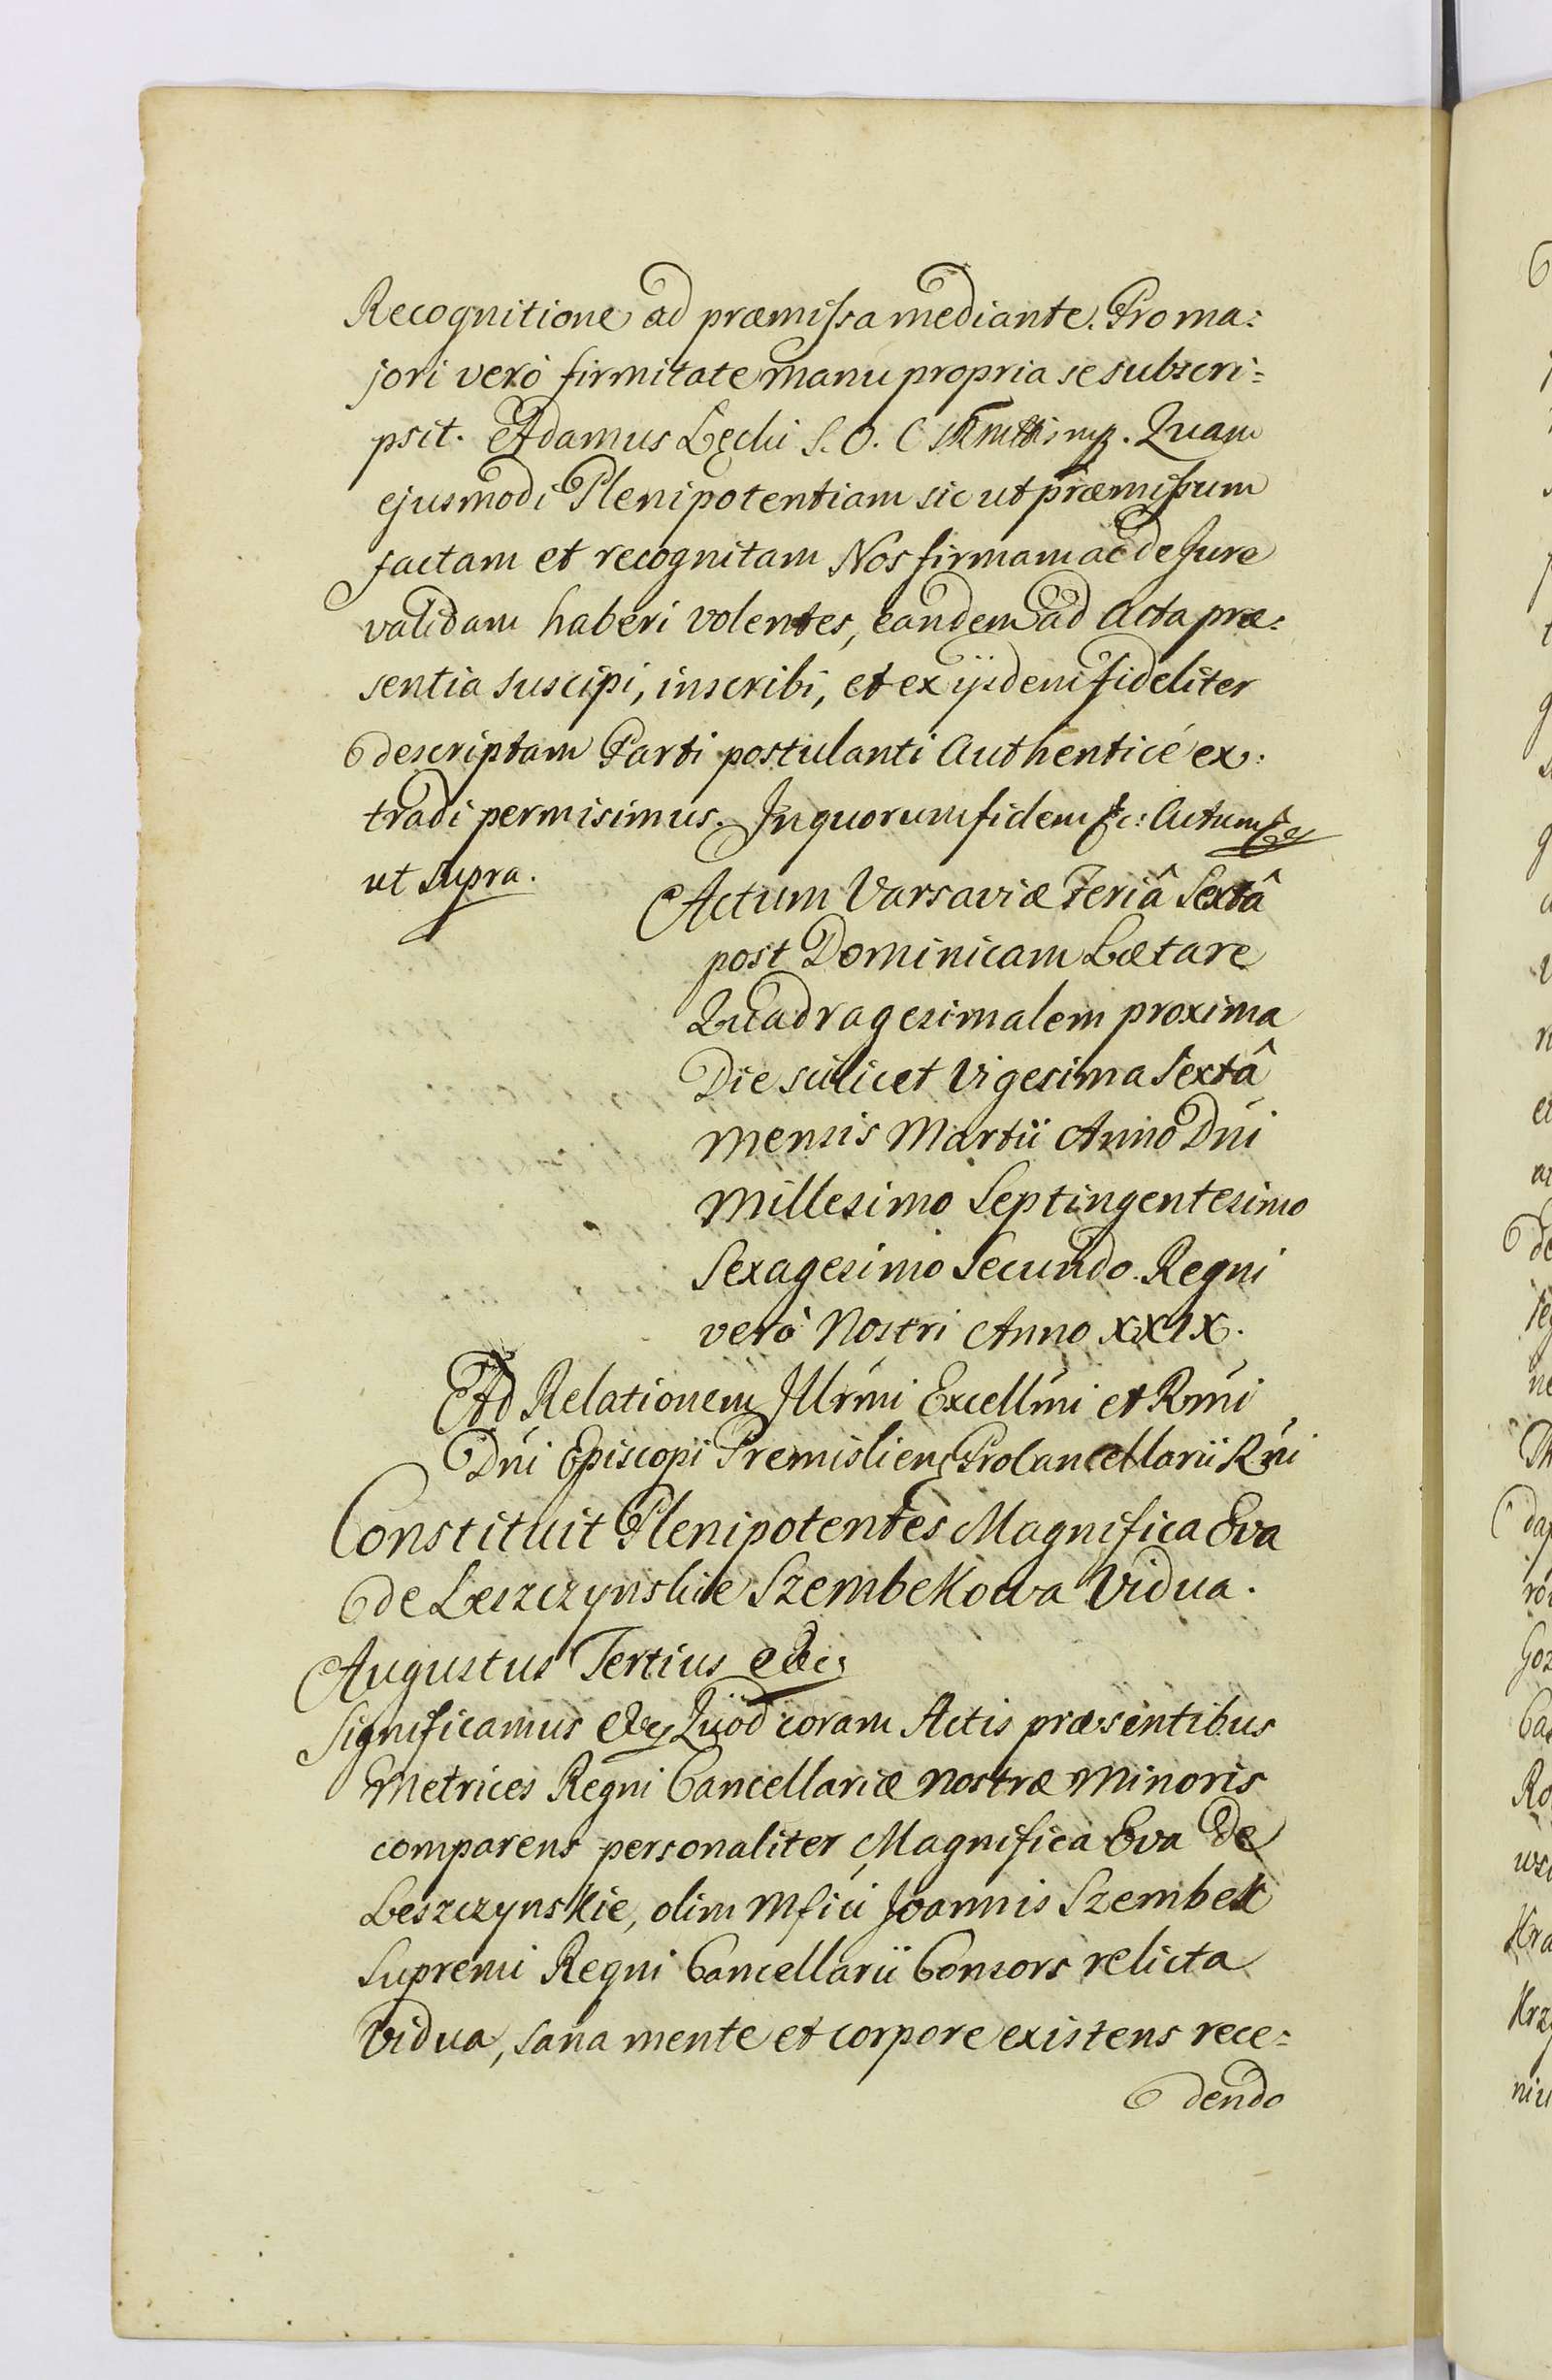 Recognitione ad præmissa mediante. Pro ma:
jori verò firmitate manu propria se subscri:
psit. Adamus Łęcki S. O. C mp. Quam
ejusmodi Plenipotentiam sic ut præmissum
factam et recognitam Nos firmam ac de Jure
validam haberi volentes, eandem ad Acta præ:
sentia suscipi, inscribi, et ex ijsdem fideliter
descriptam Parti postulanti Authenticé ex:
tradi permisimus. In quorum fidem &c: Actum &c
ut supra.
Actum Varsaviæ Feriâ Sextâ
post Dominicam Lætare
Quadragesimalem proxima
Die scilicet Vigesima Sextâ
mensis Martii Anno Dni
Millesimo Septingentesimo
Sexagesimo Secundo. Regni
verò Nostri Anno XXIX.
Ad Relationem Illrmi Excellmi et Rmi
Dni Episcopi Premisliens Procancellarii Rni
Constituit Plenipotentes Magnifica Eva
de Leszczynskie Szembekowa Vidua.
Augustus Tertius &c
Significamus &c Quod coram Actis præsentibus
Metrices Regni Cancellariæ Nostræ Minoris
comparens personaliter Magnifica Eva de
Leszczynskie, olim Mfici Joannis Szembek
Supremi Regni Cancellarii Consors relicta
Vidua, sana mente et corpore existens rece:
dendo